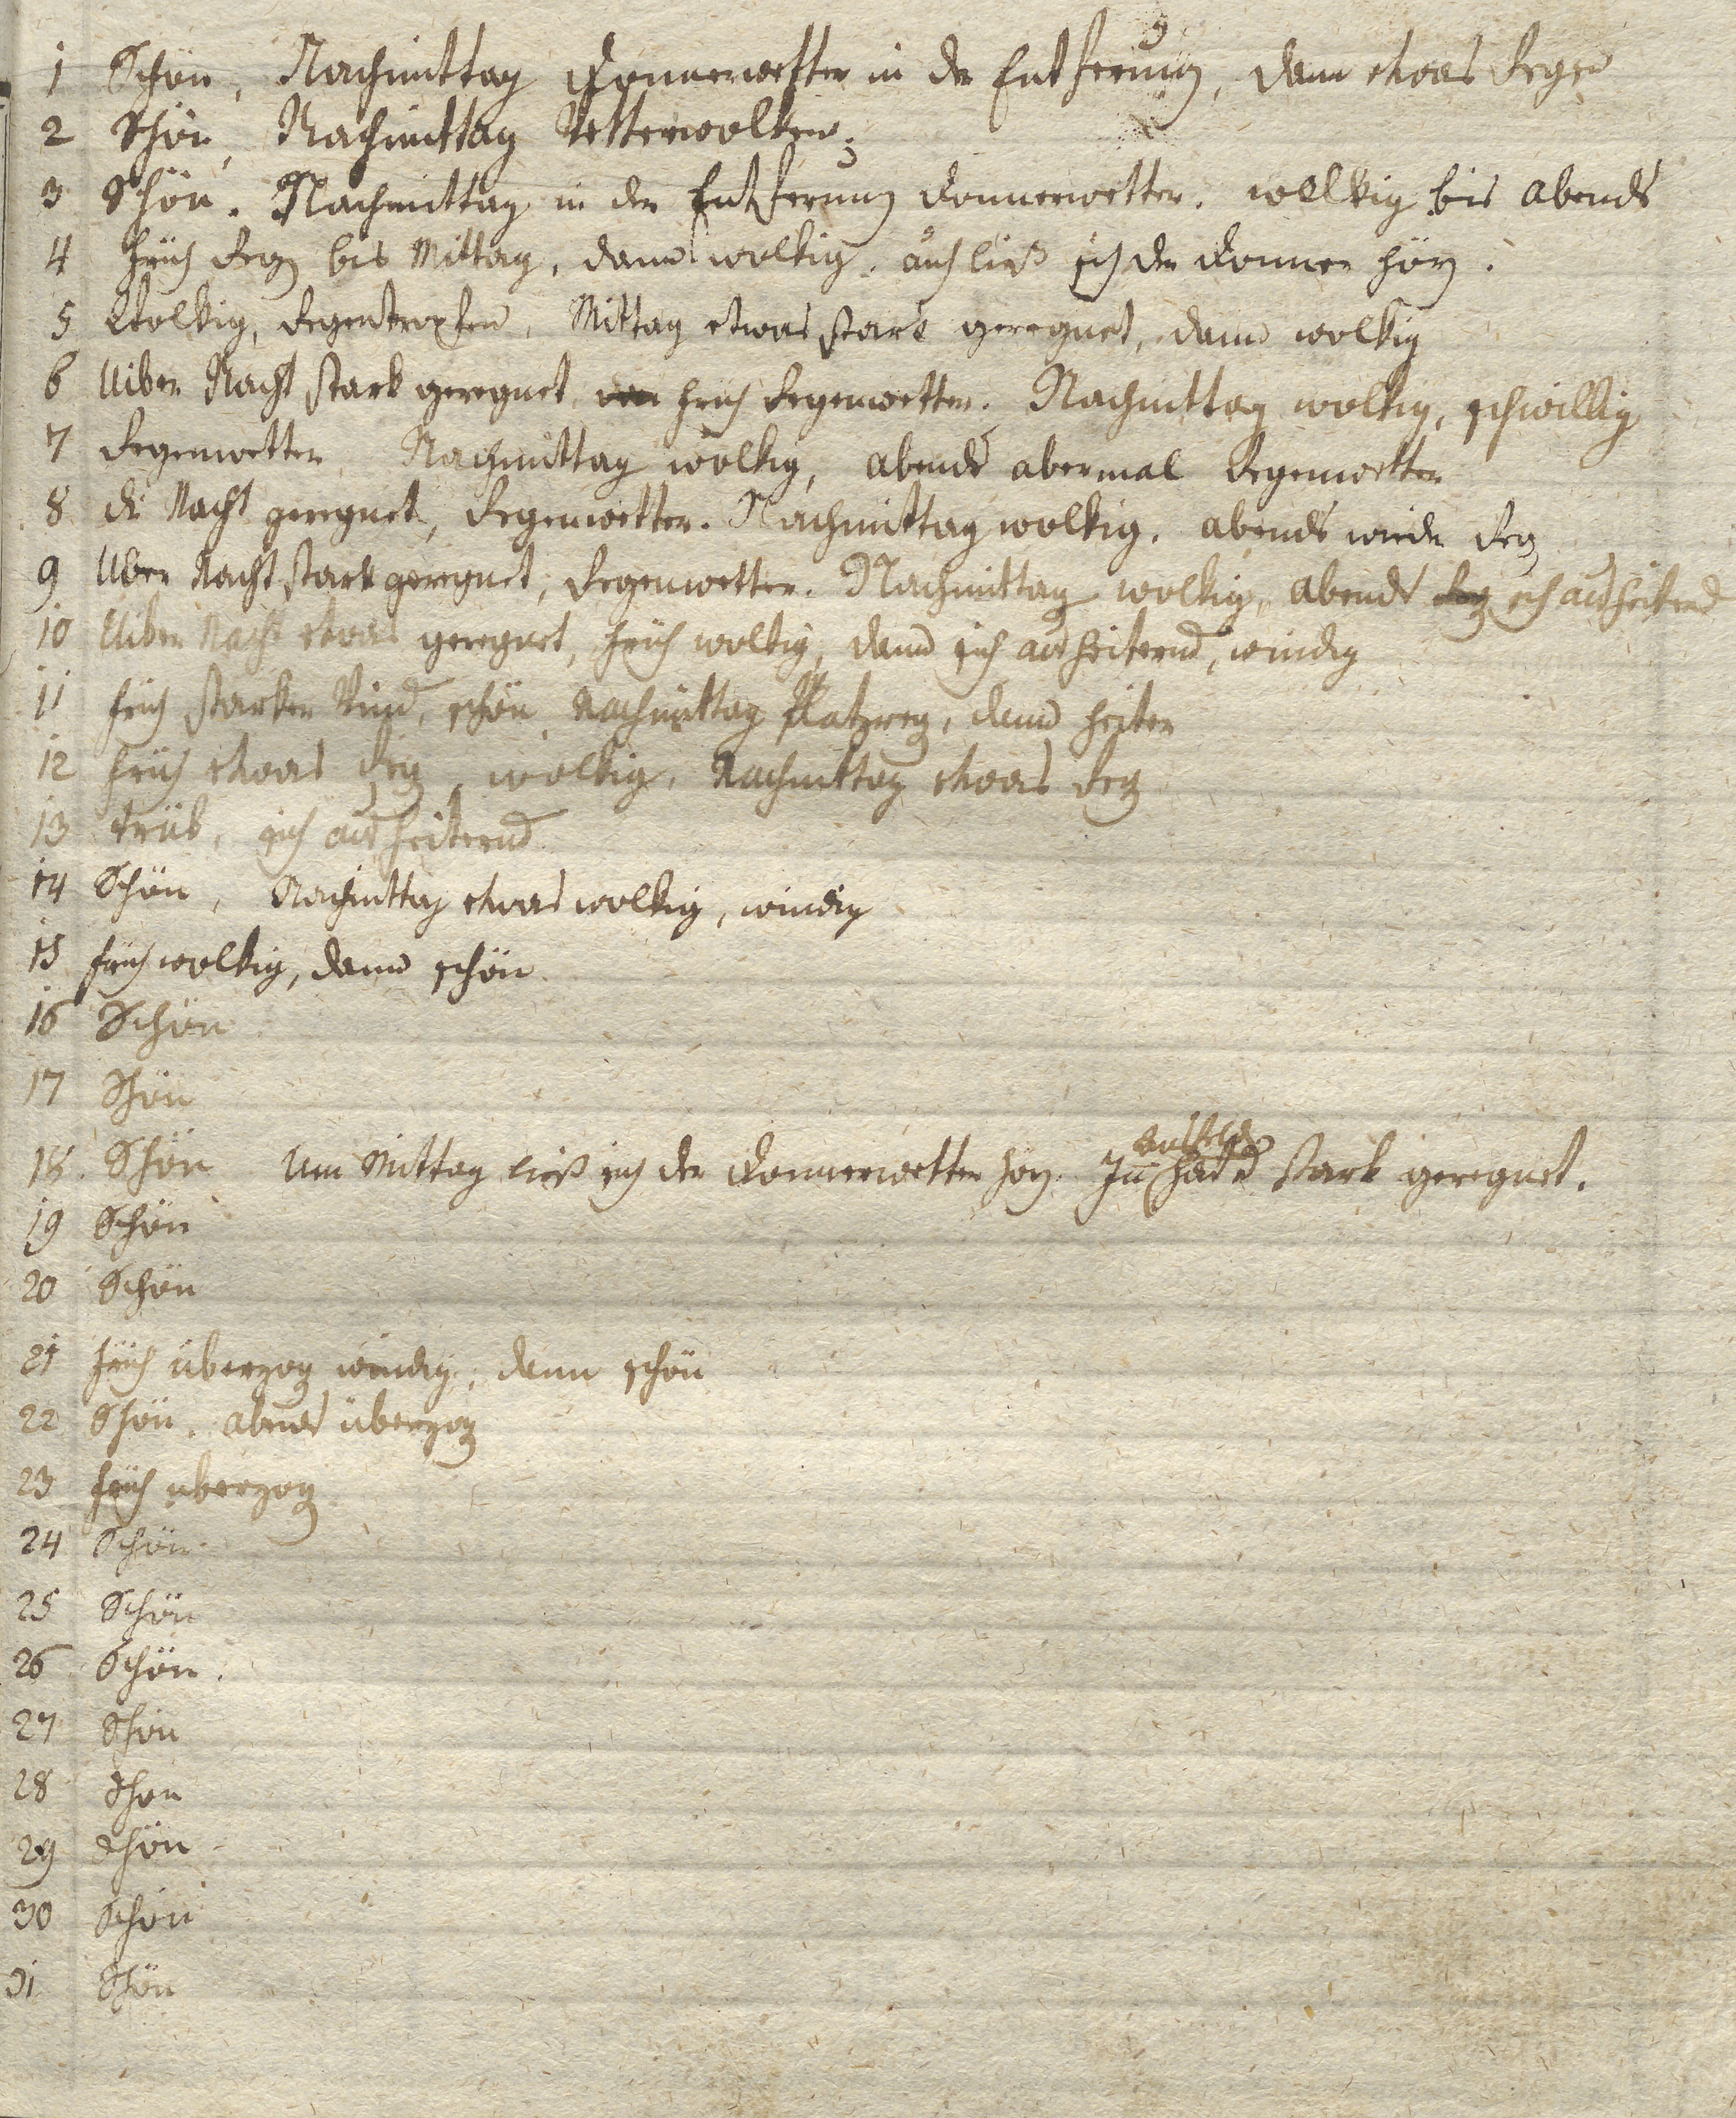 1 Schön, Nachmittag Donnerwetter in der Entfernung, dann etwas Regen
2 Schön, Nachmittag Wetterwolken.
3 Schön. Nachmittag in der Entfernung Donnerwetter. wolkig bis abends
4 früh Regen bis Mittag, dann wolkig. auch ließ sich der Donner hören.
5 Wolkig, Regentropfen, Mittag etwas stark geregnet, dann wolkig
6 Uiber Nacht stark geregnet früh Regenwetter. Nachmittag wolkig, schwillig
7 Regenwetter Nachmittag wolkig, abends abermal Regenwetter
8 di Nacht geregnet, Regenwetter. Nachmittag wolkig. abends wieder Regen
9 Uber Nacht stark geregnet, Regenwetter. Nachmittag wolkig, abends sich ausheiternd
10 Uiber Nacht etwas geregnet, früh wolkig, dann sich ausheiternd, windig
11 früh starker Wind, schön, Nachmittag Platzregen, dann heiter
12 früh etwas Regen, wolkig, Nachmittag etwas Regen
13 trüb, sich ausheiternd
14 Schön, Nachmittag etwas wolkig, windig
15 früh wolkig, dann schön
16 Schön
17 Schön
18. Schön Um Mittag ließ sich der Donnerwetter hören. In hat es stark geregnet.
19 Schön
20 Schön
21 früh überzogen windig, dann schön
22 Schön. abends überzogen
23 früh uberzogen
24 Schön
25 Schön
26 Schön.
27 Schön
28 Schon
29 Schön
30 Schön
31 Schön